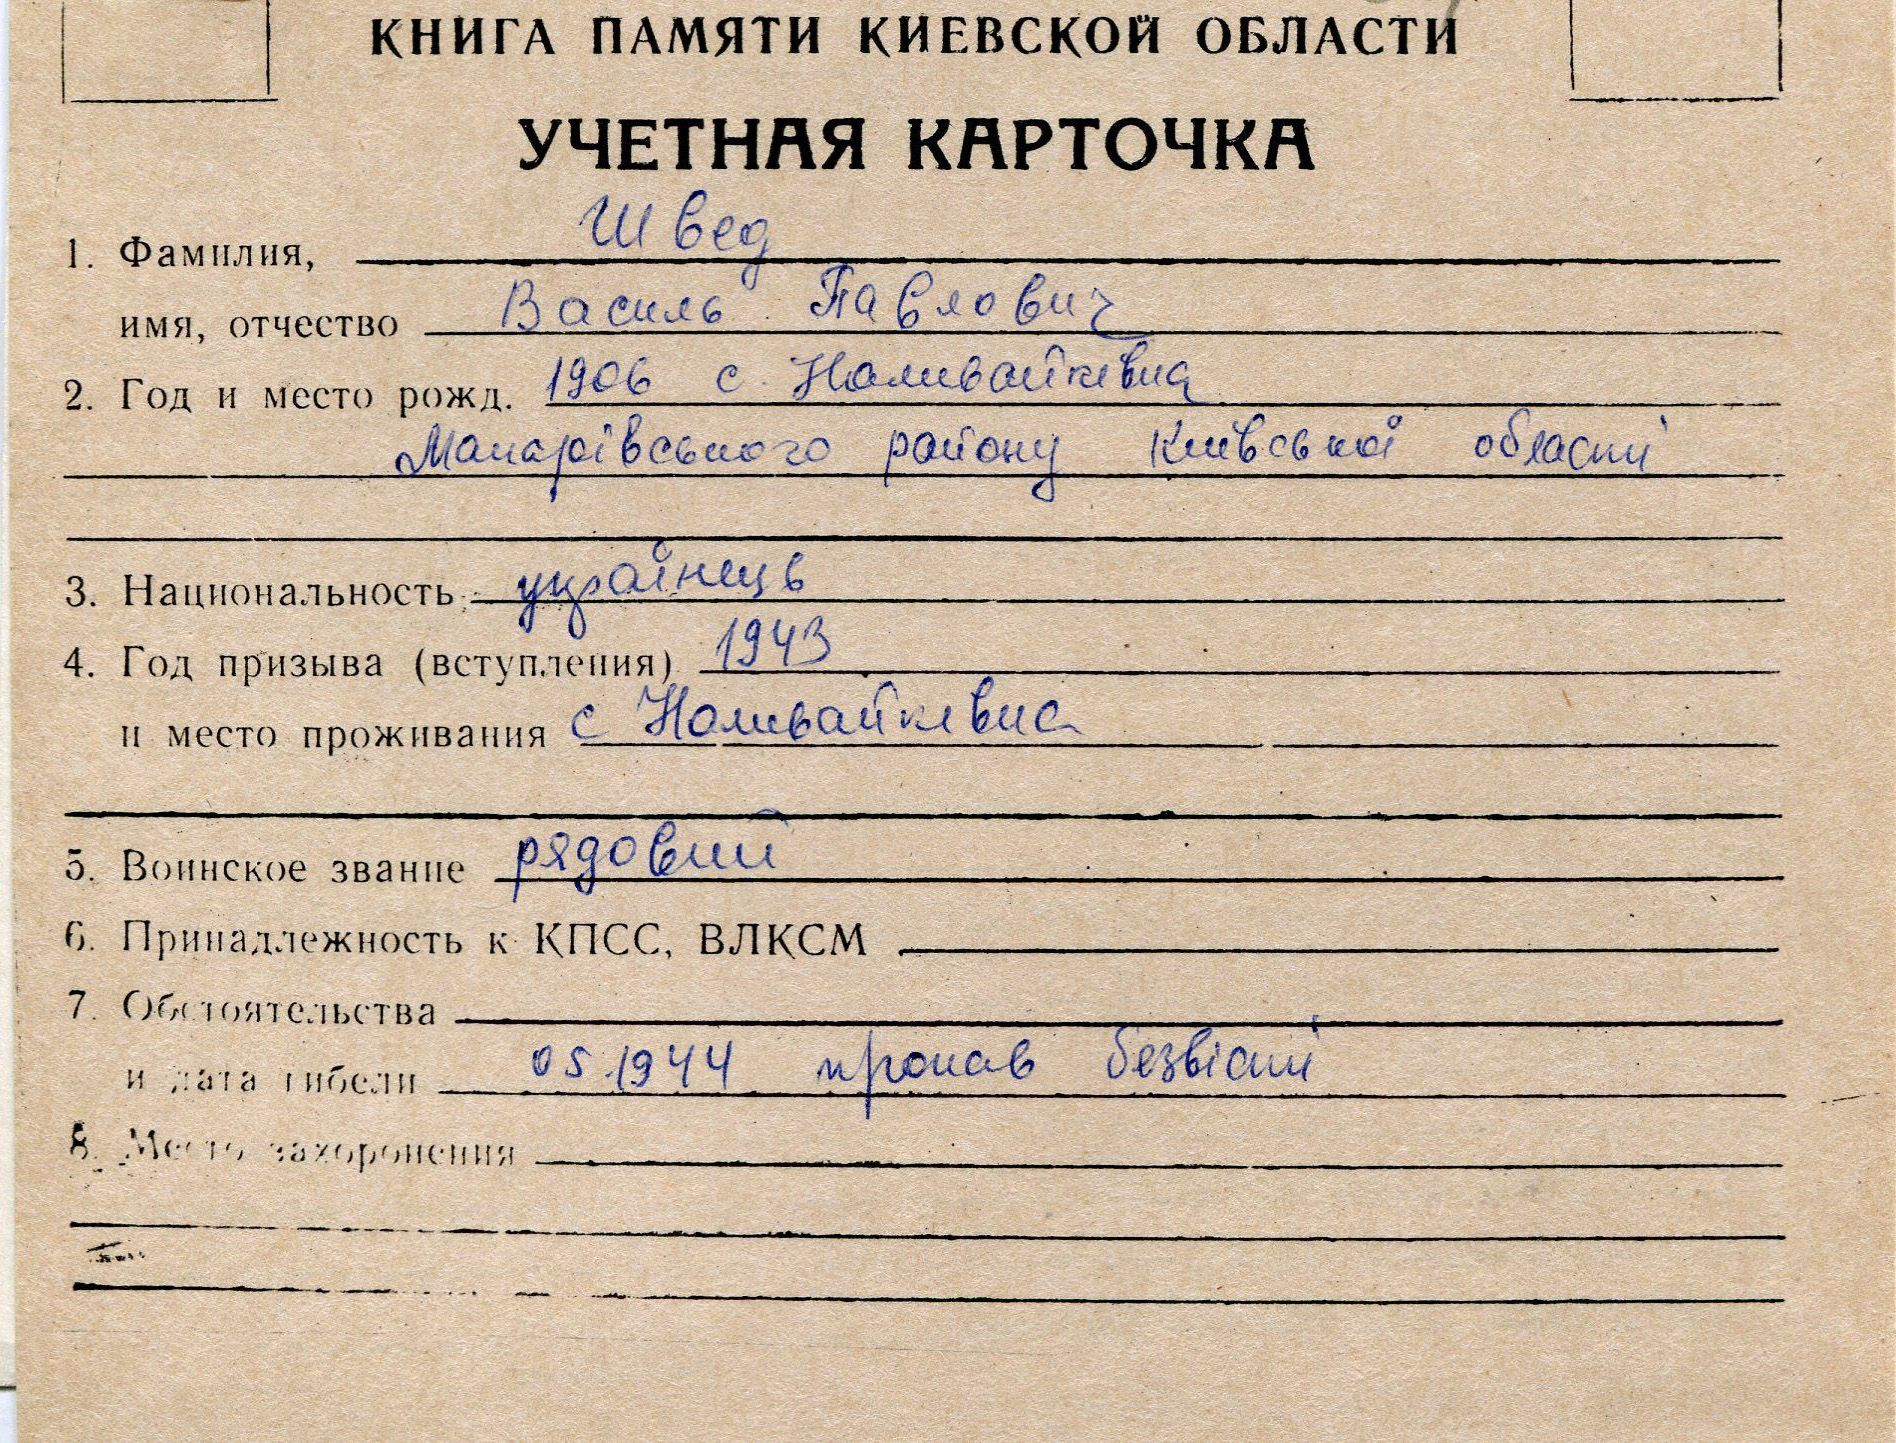 КНИГА ПАМЯТИ КИЕВСКОЙ ОБЛАСТИ
УЧЕТНАЯ КАРТОЧКА
1. Фамилия, Швед
имя, отчество Василь Павлович
2. Год и место рожд. 1906 с. Наливайківка
Макарівського району Київської області
3. Национальность українець
4. Год призыва (вступления) 1943
и место проживания с Наливайківка
5. Воинское звание рядовий
6. Принадлежность к КПСС, ВЛКСМ
7. Обстоятельства
и дата гибели 05.1944 пропав безвісті
8. Место захоронения